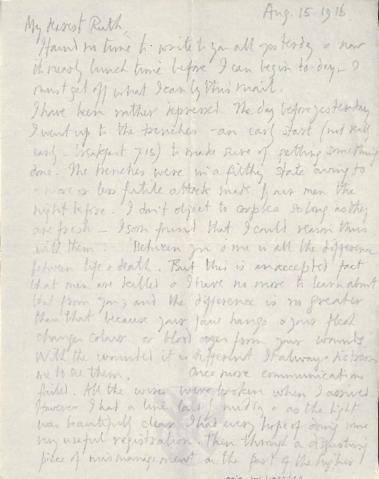 Aug. 15. 1916
My dearest Ruth,
I had no time to write to you all yesterday & now
it's nearly lunch time before I can begin today. I
must get off what I can by this mail.
I have been rather depressed. The day before yesterday
I went up to the trenches - an early start (not really
early - breakfast 7.15) to make sure of getting something
done. The trenches were in a filthy state owing to
a more or less futile attack made by our men the
night before. I don't object to corpses so long as they
are fresh - I soon found that I could reason thus
with them: Between you & me is all the difference
between life & death. But this is an accepted fact
that men are killed & I have no more to learn about
that from you, and the difference is no greater
than that because your jaw hangs & your flesh
changes colour or blood oozes from your wounds.
With the wounded it is different. It always distresses
me to see them. Once more communications
failed. All the wires were broken when I arrived.
However I had a line laid & as the light
was beautifully clear I had every hope of doing some
very useful registration. Then through a disgusting
piece of mismanagement on the part of the higher